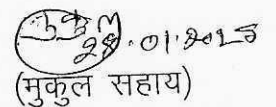 28.01.2025
(मुकुल सहाय)